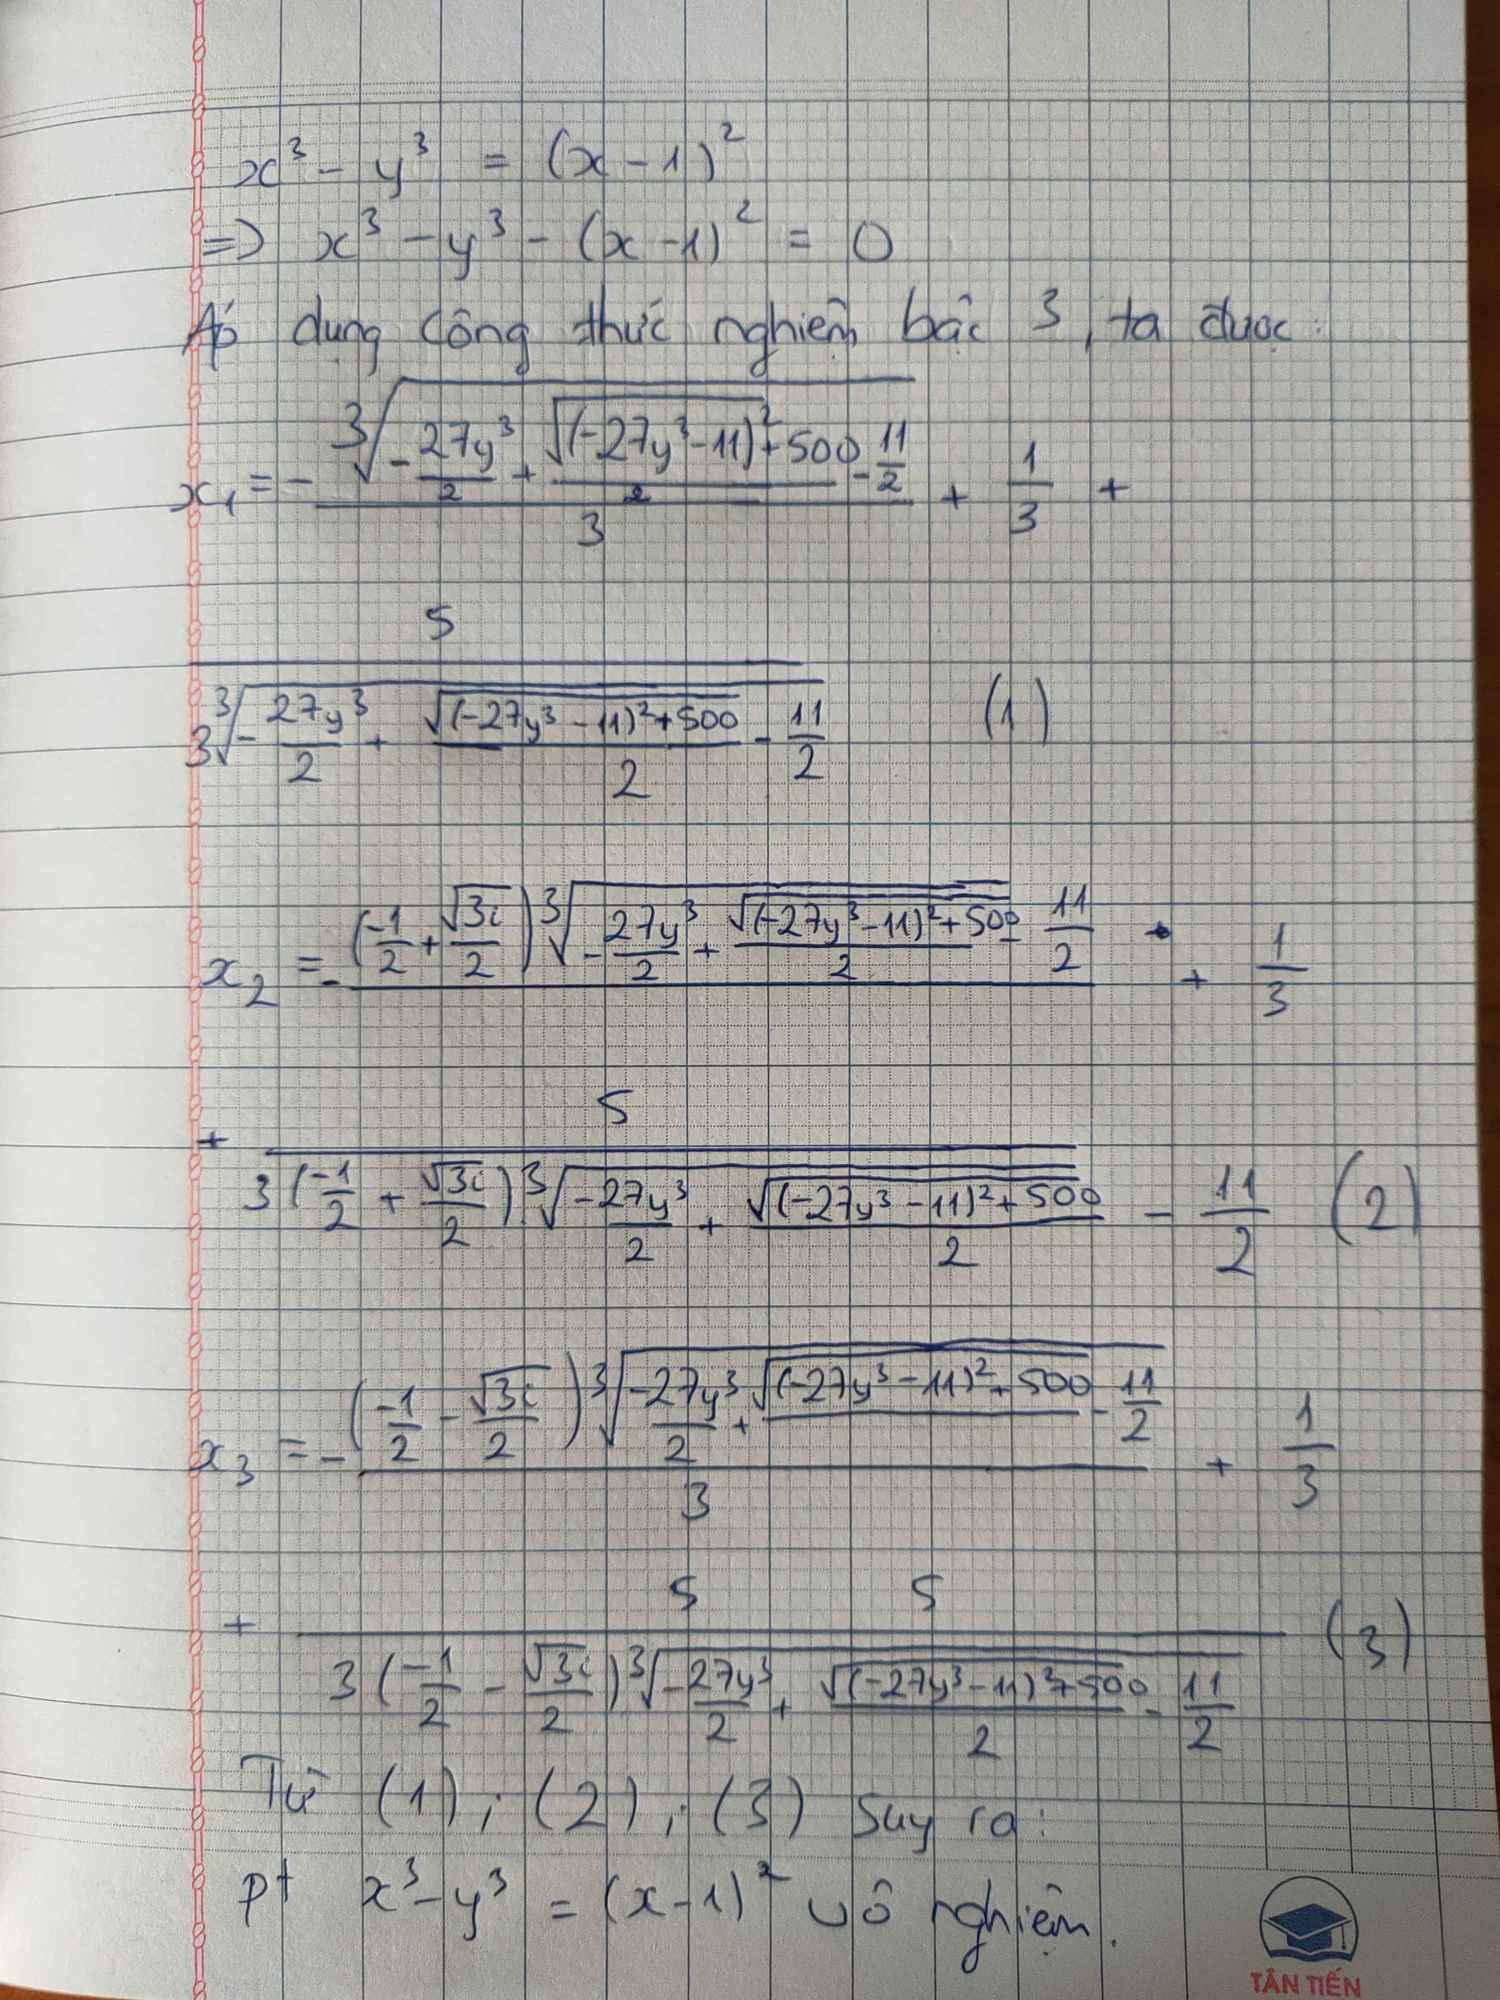 x³ - y³ = (x - 1)²
=> x³ - y³ - (x - 1)² = 0
Áp dụng công thức nghiệm bậc 3, ta được:
x₁ = - \frac{\sqrt[3]{-\frac{27y³}{2} + \frac{\sqrt{(-27y³-11)²+500}}{2} - \frac{11}{2}}}{3} + \frac{1}{3} +
\frac{5}{3\sqrt[3]{-\frac{27y³}{2} + \frac{\sqrt{(-27y³-11)²+500}}{2} - \frac{11}{2}}} (1)
x₂ = - \frac{(\frac{-1}{2} + \frac{\sqrt{3}i}{2}) \sqrt[3]{-\frac{27y³}{2} + \frac{\sqrt{(-27y³-11)²+500}}{2} - \frac{11}{2}}}{} + \frac{1}{3}
+ \frac{5}{3(\frac{-1}{2} + \frac{\sqrt{3}i}{2}).\sqrt[3]{-\frac{27y³}{2} + \frac{\sqrt{(-27y³-11)²+500}}{2}}} - \frac{11}{2} (2)
x₃ = - \frac{(\frac{-1}{2} - \frac{\sqrt{3}i}{2}) \sqrt[3]{\frac{-27y³}{2} + \frac{\sqrt{(-27y³-11)²+500}}{} - \frac{11}{2}}}{3} + \frac{1}{3}
+ \frac{5 5}{3(\frac{-1}{2} - \frac{\sqrt{3}i}{2}) \sqrt[3]{\frac{-27y³}{2} + \frac{\sqrt{(-27y³-11)²+500}}{2} - \frac{11}{2}}} (3)
Từ (1); (2); (3) suy ra:
pt x³ - y³ = (x - 1)² vô nghiệm.
TÂN TIẾN